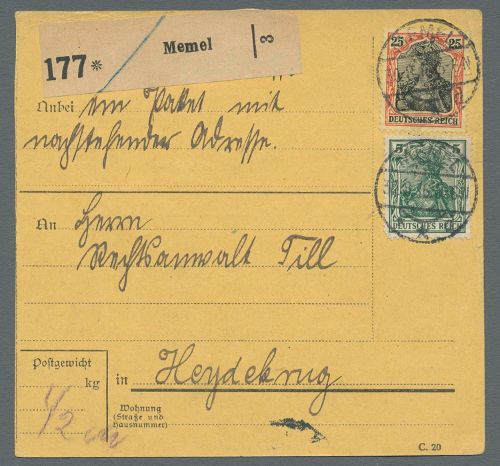 177* Memel 8
25 25
DEUTSCHES REICH
Anbei ein Paket mit
nachstehender Adresse.
5 5
DEUTSCHES REICH
An Herrn
Rechtsanwalt Till
Postgewicht
kg
in Heydekrug
1/2
Wohnung
(Straße und
Hausnummer)
C. 20